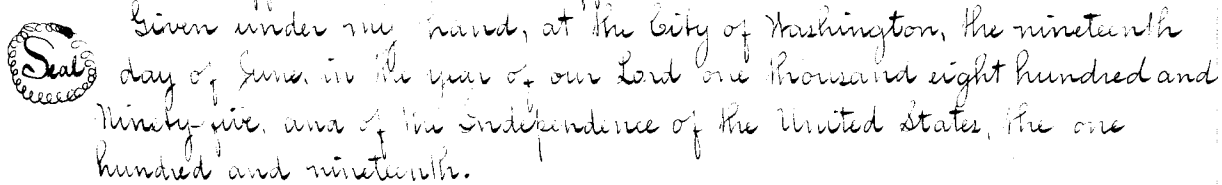 Given under my hand, at the City of Washington, the nineteenth
Seal
day of June, in the year of our Lord one thousand eight hundred and
Ninety-five, and of the Independence of the United States, the one
hundred and nineteenth.